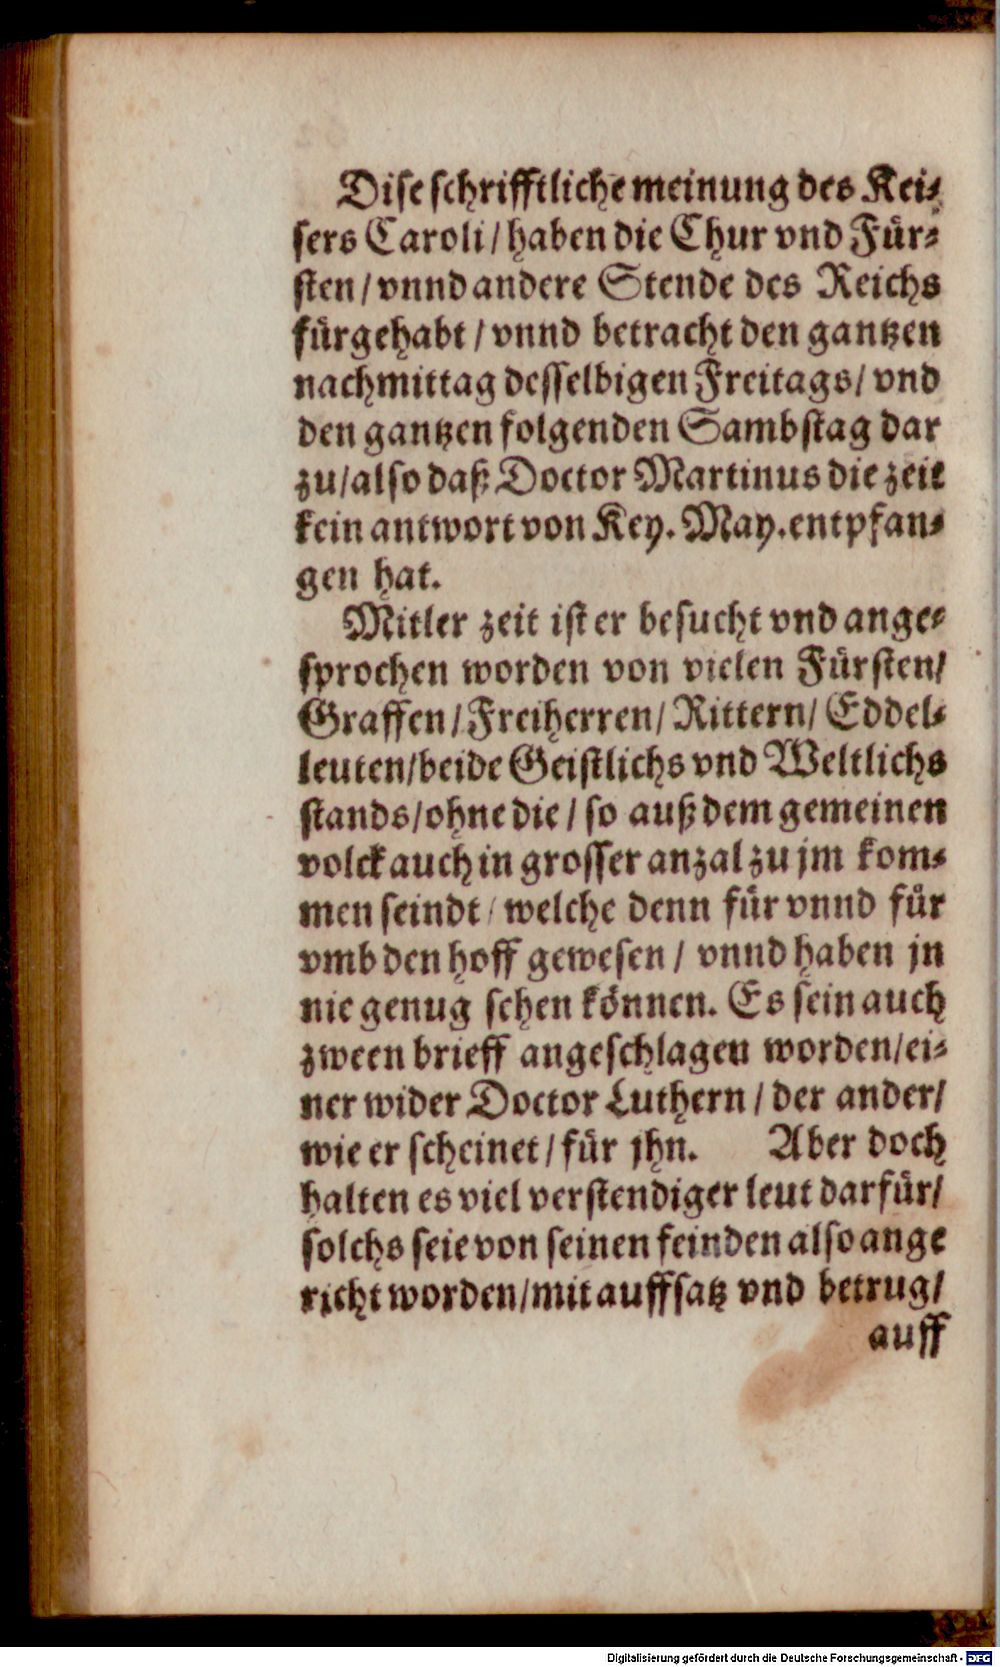 Dise schrifftliche meinung des Kei-
sers Caroli / haben die Chur vnd Für-
sten / vnnd andere Stende des Reichs
fürgehabt / vnnd betracht den gantzen
nachmittag desselbigen Freitags / vnd
den gantzen folgenden Sambstag dar
zu / also daß Doctor Martinus die zeit
kein antwort von Key. May. entpfan-
gen hat.
Mitler zeit ist er besucht vnd ange-
sprochen worden von vielen Fürsten /
Graffen / Freiherren / Rittern / Eddel-
leuten / beide Geistlichs vnd Weltlichs
stands / ohne die / so auß dem gemeinen
volck auch in grosser anzal zu jm kom-
men seindt / welche denn für vnnd für
vmb den hoff gewesen / vnnd haben jn
nie genug sehen können. Es sein auch
zween brieff angeschlagen worden / ei-
ner wider Doctor Luthern / der ander /
wie er scheinet / für jhn. Aber doch
halten es viel verstendiger leut darfür /
solchs seie von seinen feinden also ange
richt worden / mit auffsatz vnd betrug /
auff
Digitalisierung gefördert durch die Deutsche Forschungsgemeinschaft - DFG